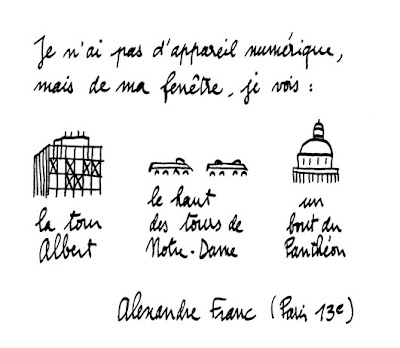 Je n'ai pas d'appareil numérique,
mais de ma fenêtre, je vois :
la tour
Albert
le haut
des tours de
Notre-Dame
un
bout du
Panthéon
Alexandre Franc (Paris 13e)